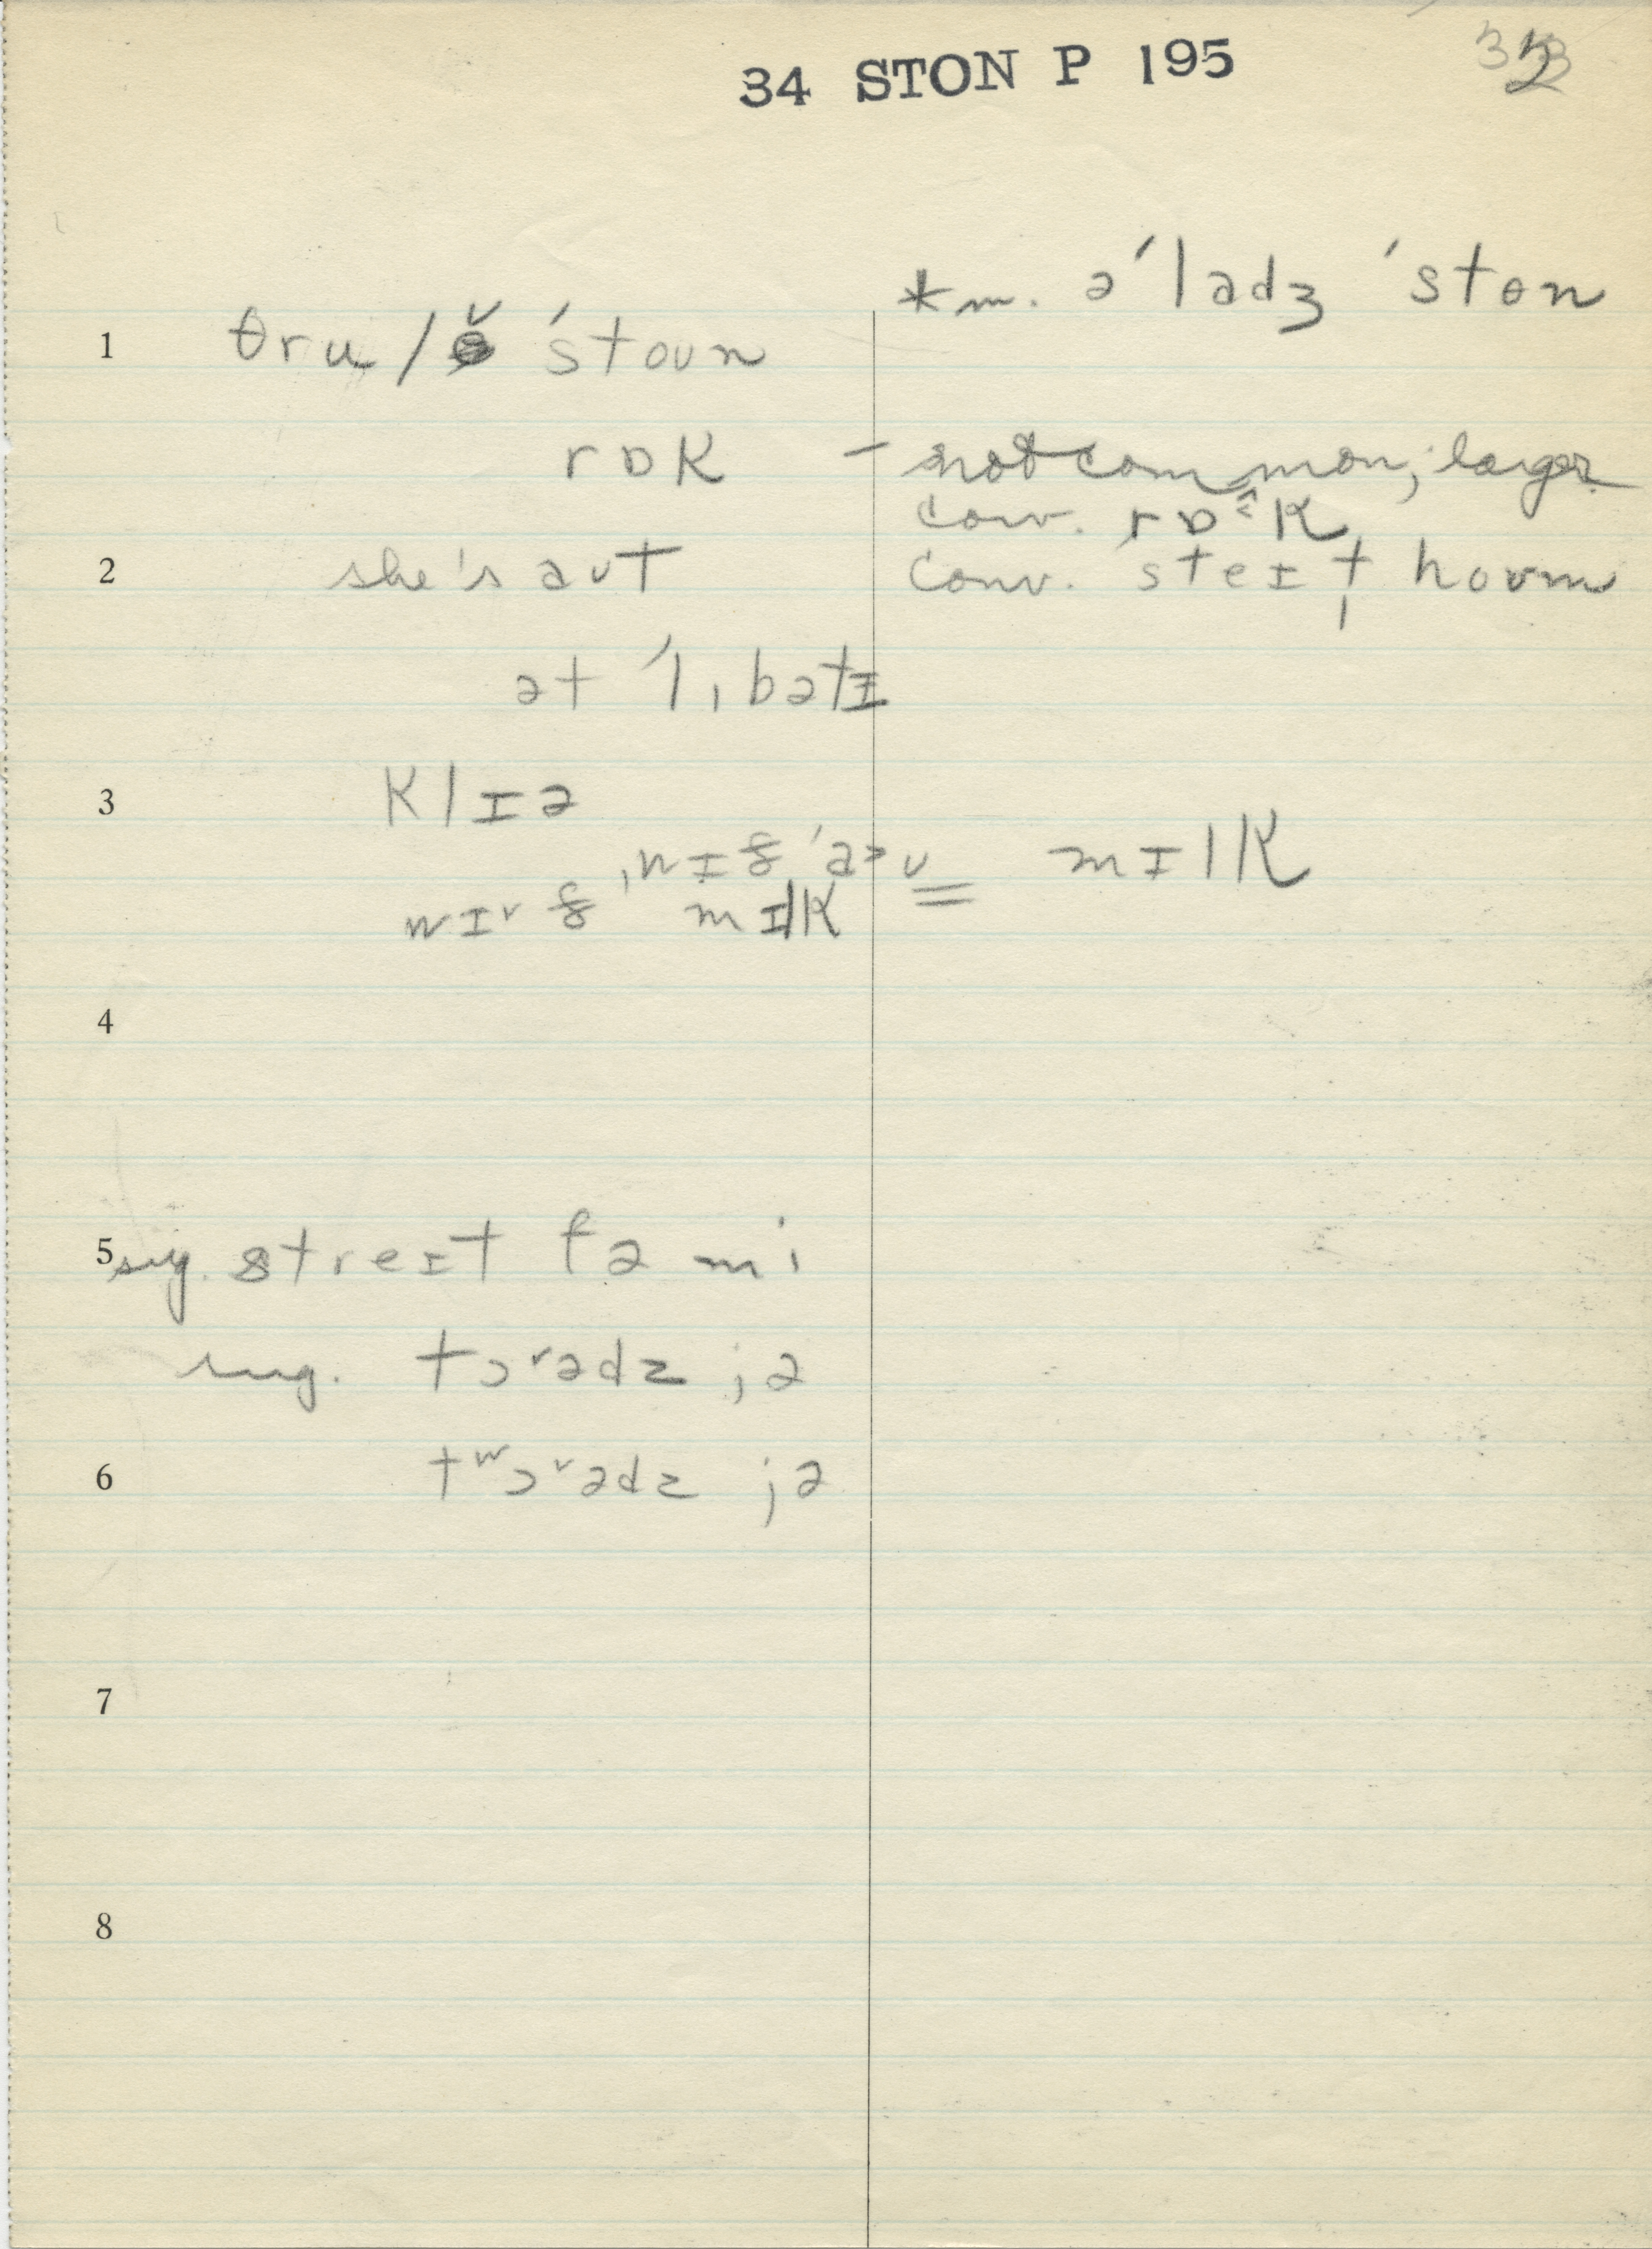 34 STON P 195
*m. ə ˈladʒ ˈstɵn
1 θru / ə̌ ˈstoun
rɒk – not common; larger
conv. rɒ^k
2 she's aut conv. steɪt̩ houm
ət ˈlibətɪ
3 klɪə
mɪlk
mɪlk
4
5 sug. streɪt fə mi
sug. tɔᵛədz jə
6 tʷɔᵛədz jə
7
8